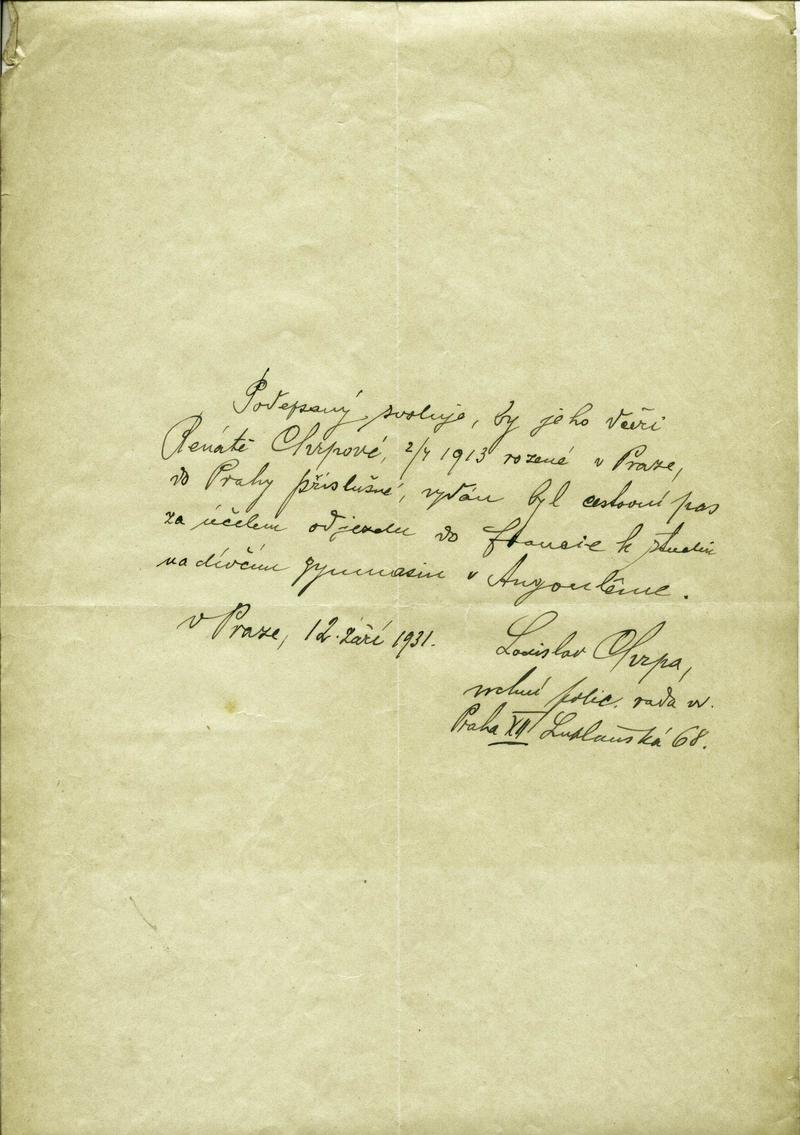 Podepsaný svoluje, by jeho dceři
Renátě Chrpové, 2/4 1913 rozené v Praze,
do Prahy příslušné, vydán byl cestovní pas
za účelem odjezdu do Francie k studiu
na dívčím gymnasiu v Angoulême.
v Praze, 12. září 1931.
Ladislav Chrpa,
vrchní polic. rada vv.
Praha XII Lublaňská 68.